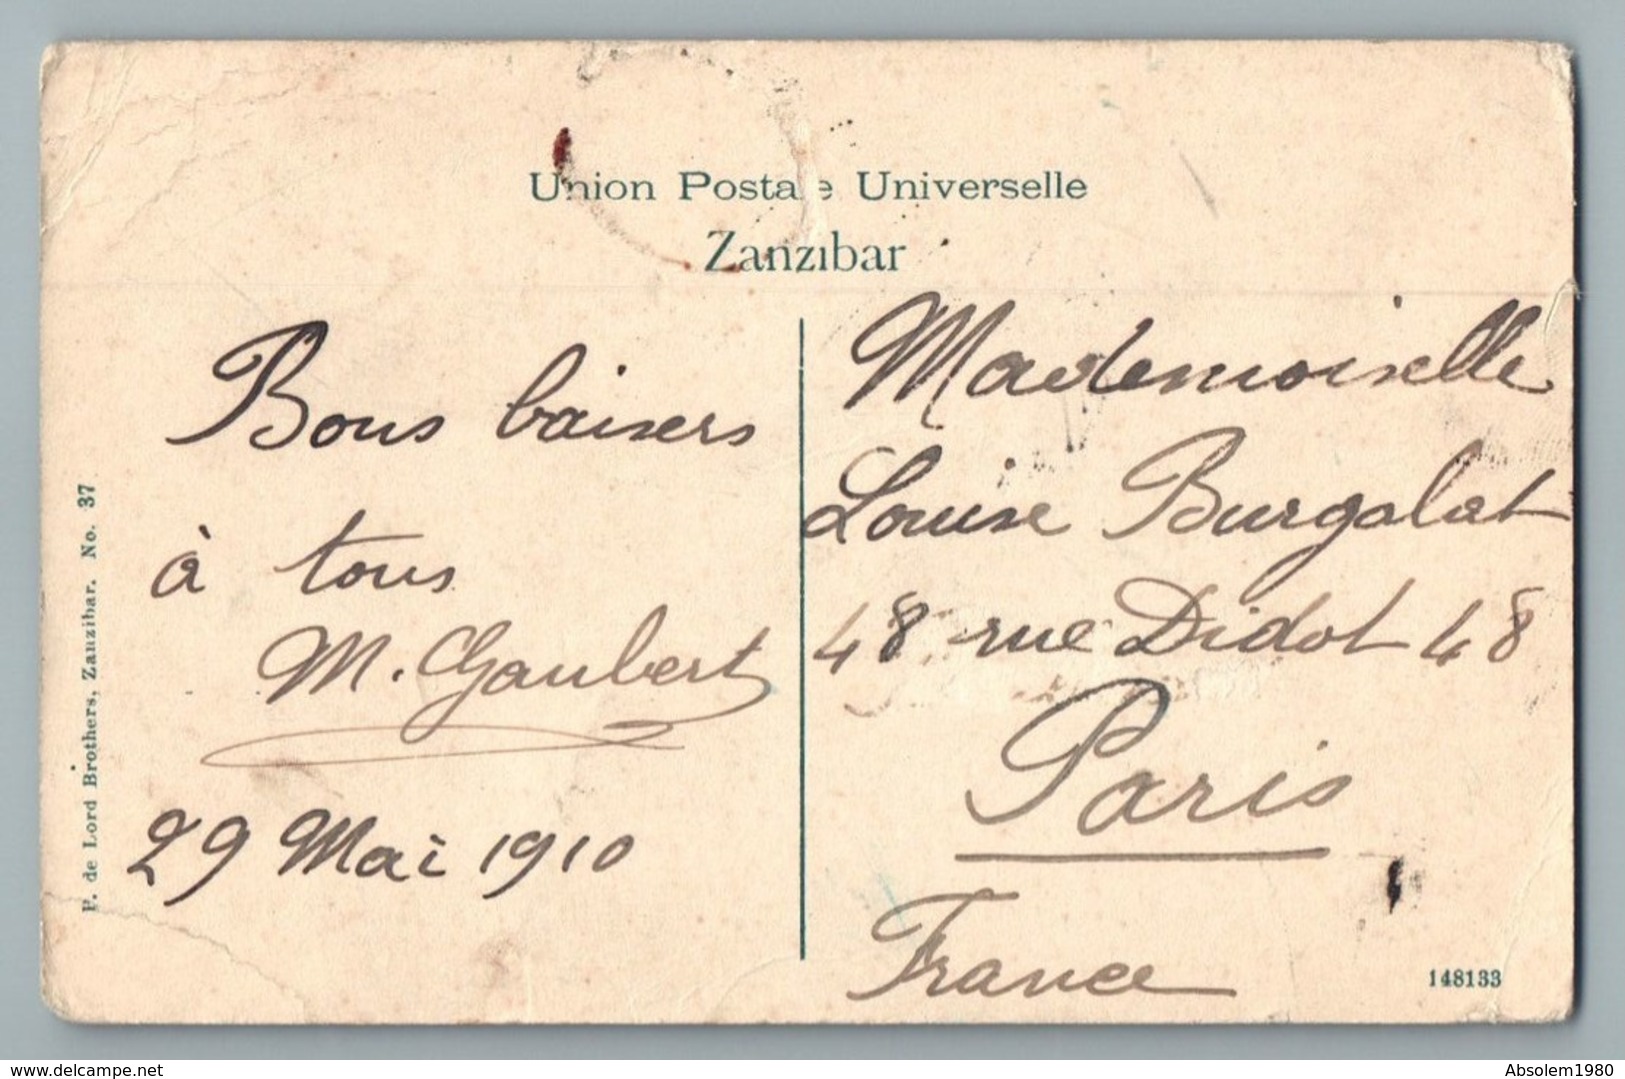 Union Postale Universelle
Zanzibar
Bons baisers
à tous
M. Gaubert
29 Mai 1910
Mademoiselle
Louise Burgalat
48 rue Didot 48
Paris
France
P. de Lord Brothers, Zanzibar. No. 37
148133
www.delcampe.net
Absolem1980